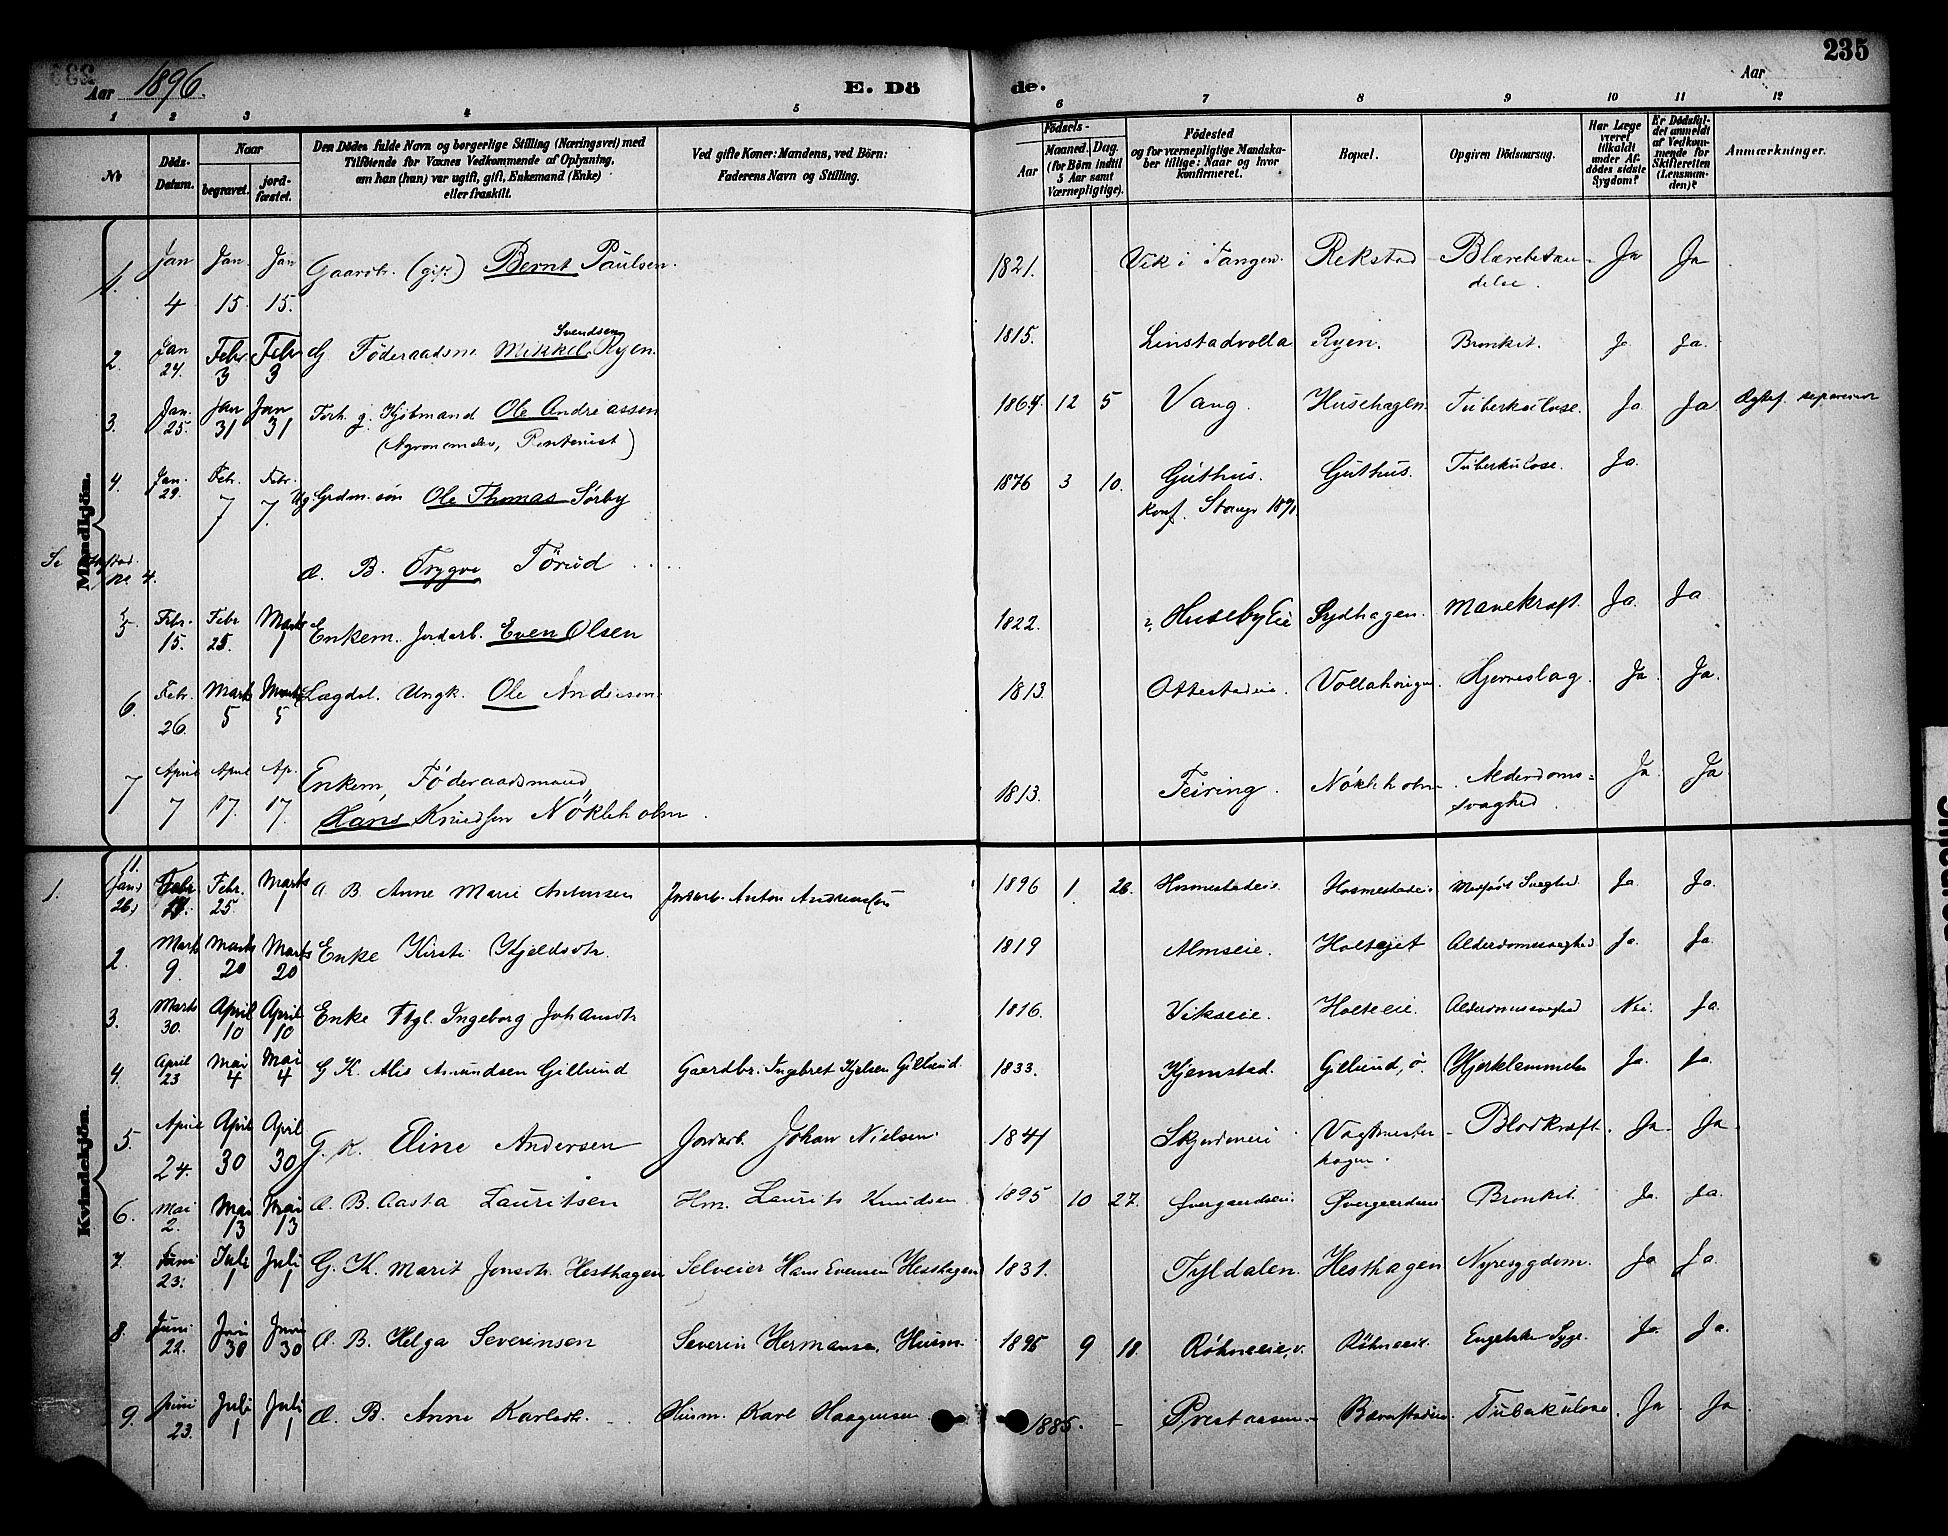 235
Aar 1896.
E. Dö
de.
Aar
1 2 3 4 5 6 7 8 9 10 11 12
No
Döds-Datum.
Naar
begravet.
jord-fæstet.
Den Dödes fulde Navn og borgerlige Stilling (Næringsvei) med
Tilföiende for Voxnes Vedkommende af Oplysning,
om han (hun) var ugift, gift, Enkemand (Enke)
eller fraskilt.
Ved gifte Koner: Mandens, ved Börn:
Faderens Navn og Stilling.
Födsels-
Aar
Maaned. Dag.
(for Börn indtil
5 Aar samt
Værnepligtige).
Födested
og for værnepligtige Mandska-
ber tillige: Naar og hvor
konfirmeret.
Bopæl.
Opgiven Dödsaarsag.
Har Læge
været
tilkaldt
under Af-
dödes sidste
Sygdom?
Er Dödsfal-
det anmeldt
af Vedkom-
mende for
Skifteretten
(Lensman-
den)?
Anmærkninger.
Mandkjön.
1. Jan 4 Jan. 15 Jan 15. Gaardbr. (gift) Bernt Paulsen. 1821. Vik i Tangen. Rekstad Blærebetæn-
delse. Ja Ja
2. Jan 24. Febr. 3 Febr 3 G Föderaadsm. Mikkel Svendsen Ryen. 1815. Linstadvolla Ryen. Bronkit. Ja Ja.
3. Jan. 25. Jan 31 Jan 31 Forh. g. Kjöbmand Ole Andreassen 1864. 12 5 Vang. Husehagen. Tuberkulose. Ja Ja separeret
(Agronomelev, Rentenist)
4. Jan. 29. Febr. 7 Febr. 7. Ug. Grdm. sön Ole Thomas Sörby 1876 3 10. Guthus. Guthus. Tuberkulose. Ja.
Konf. Stange 1891.
Se no 4. Æ. B. Trygve Törud
5 Febr. 15. Febr 25. Marts 1 Enkem. Jordarb. Even Olsen 1822. Huseby Eie Sydhagen. Mavekræft. Ja. Ja.
6. Febr. 26. Marts 5 Marts 5 Lægdsl. Ungk. Ole Andersen. 1813. Ottestadeie. Hjerneslag. Ja. Ja.
7 April 7 April 17. Ap. 17. Enkem, Föderaadsmand 1813. Feiring. Nökleholm. Alderdoms=
Hans Knudsen Nökleholm. svaghed. Ja. Ja
Kvindekjön.
1. Febr. 25. Marts 1 Æ B Anne Marie Antonsen Jordarb. Anton Andreassen 1896 1. 26. Hosmestadeie Hosmestadeie Medfödt Svaghed Ja. Ja.
2. Marts 9. Marts 20 Marts 20 Enke Kirsti Kjeldsdtr. 1819 Almseie. Alderdomssvaghed Ja. Ja.
3. Marts 30. April 10 April 10 Enke Ftgl. Ingeborg Johansdtr 1816. Vikseie. Holteeie. Alderdomssvaghed Nei. Ja.
4. April 23 Mai 4 Mai 4 G K. Alis Amundsen Gillund Gaardbr. Ingebret Kjelsen Gillund. 1833. Kjemstad. Gillund, ö. Ja. Ja.
5. April 24. April 30 April 30 G. K. Eline Andersen Jordarb. Johan Nielsen. 1841 Vagtmester-
hagen. Blodkræft. Ja. Ja.
6. Mai 2. Mai 13 Mai 13 Æ. B. Aasta Lauritsen Hm. Laurits Knudsen 1895 10 27. Övergaardseie. Övergaardseie Bronkit. Ja. Ja.
7. Juni 23. Juli 1 Juli 1 G. K. Marit Jonsdtr. Hesthagen Selveier Hans Evensen Hesthagen 1831. Tyldalen. Hesthagen Nyresygdom. Ja Ja.
8. Juni 22. Juni 30 Juni 30 Æ. B. Helga Severinsen Severin Hermansen, Husm. 1895 9 18. Röhneeie, v. Röhneeie. Engelske Syge. Ja. Ja.
9. Juni 23. Juli 1 Juli 1 Æ. B. Anne Karlsdtr. Husm. Karl Haagensen 1885. Prestaasen Tuberkulose. Ja. Ja.